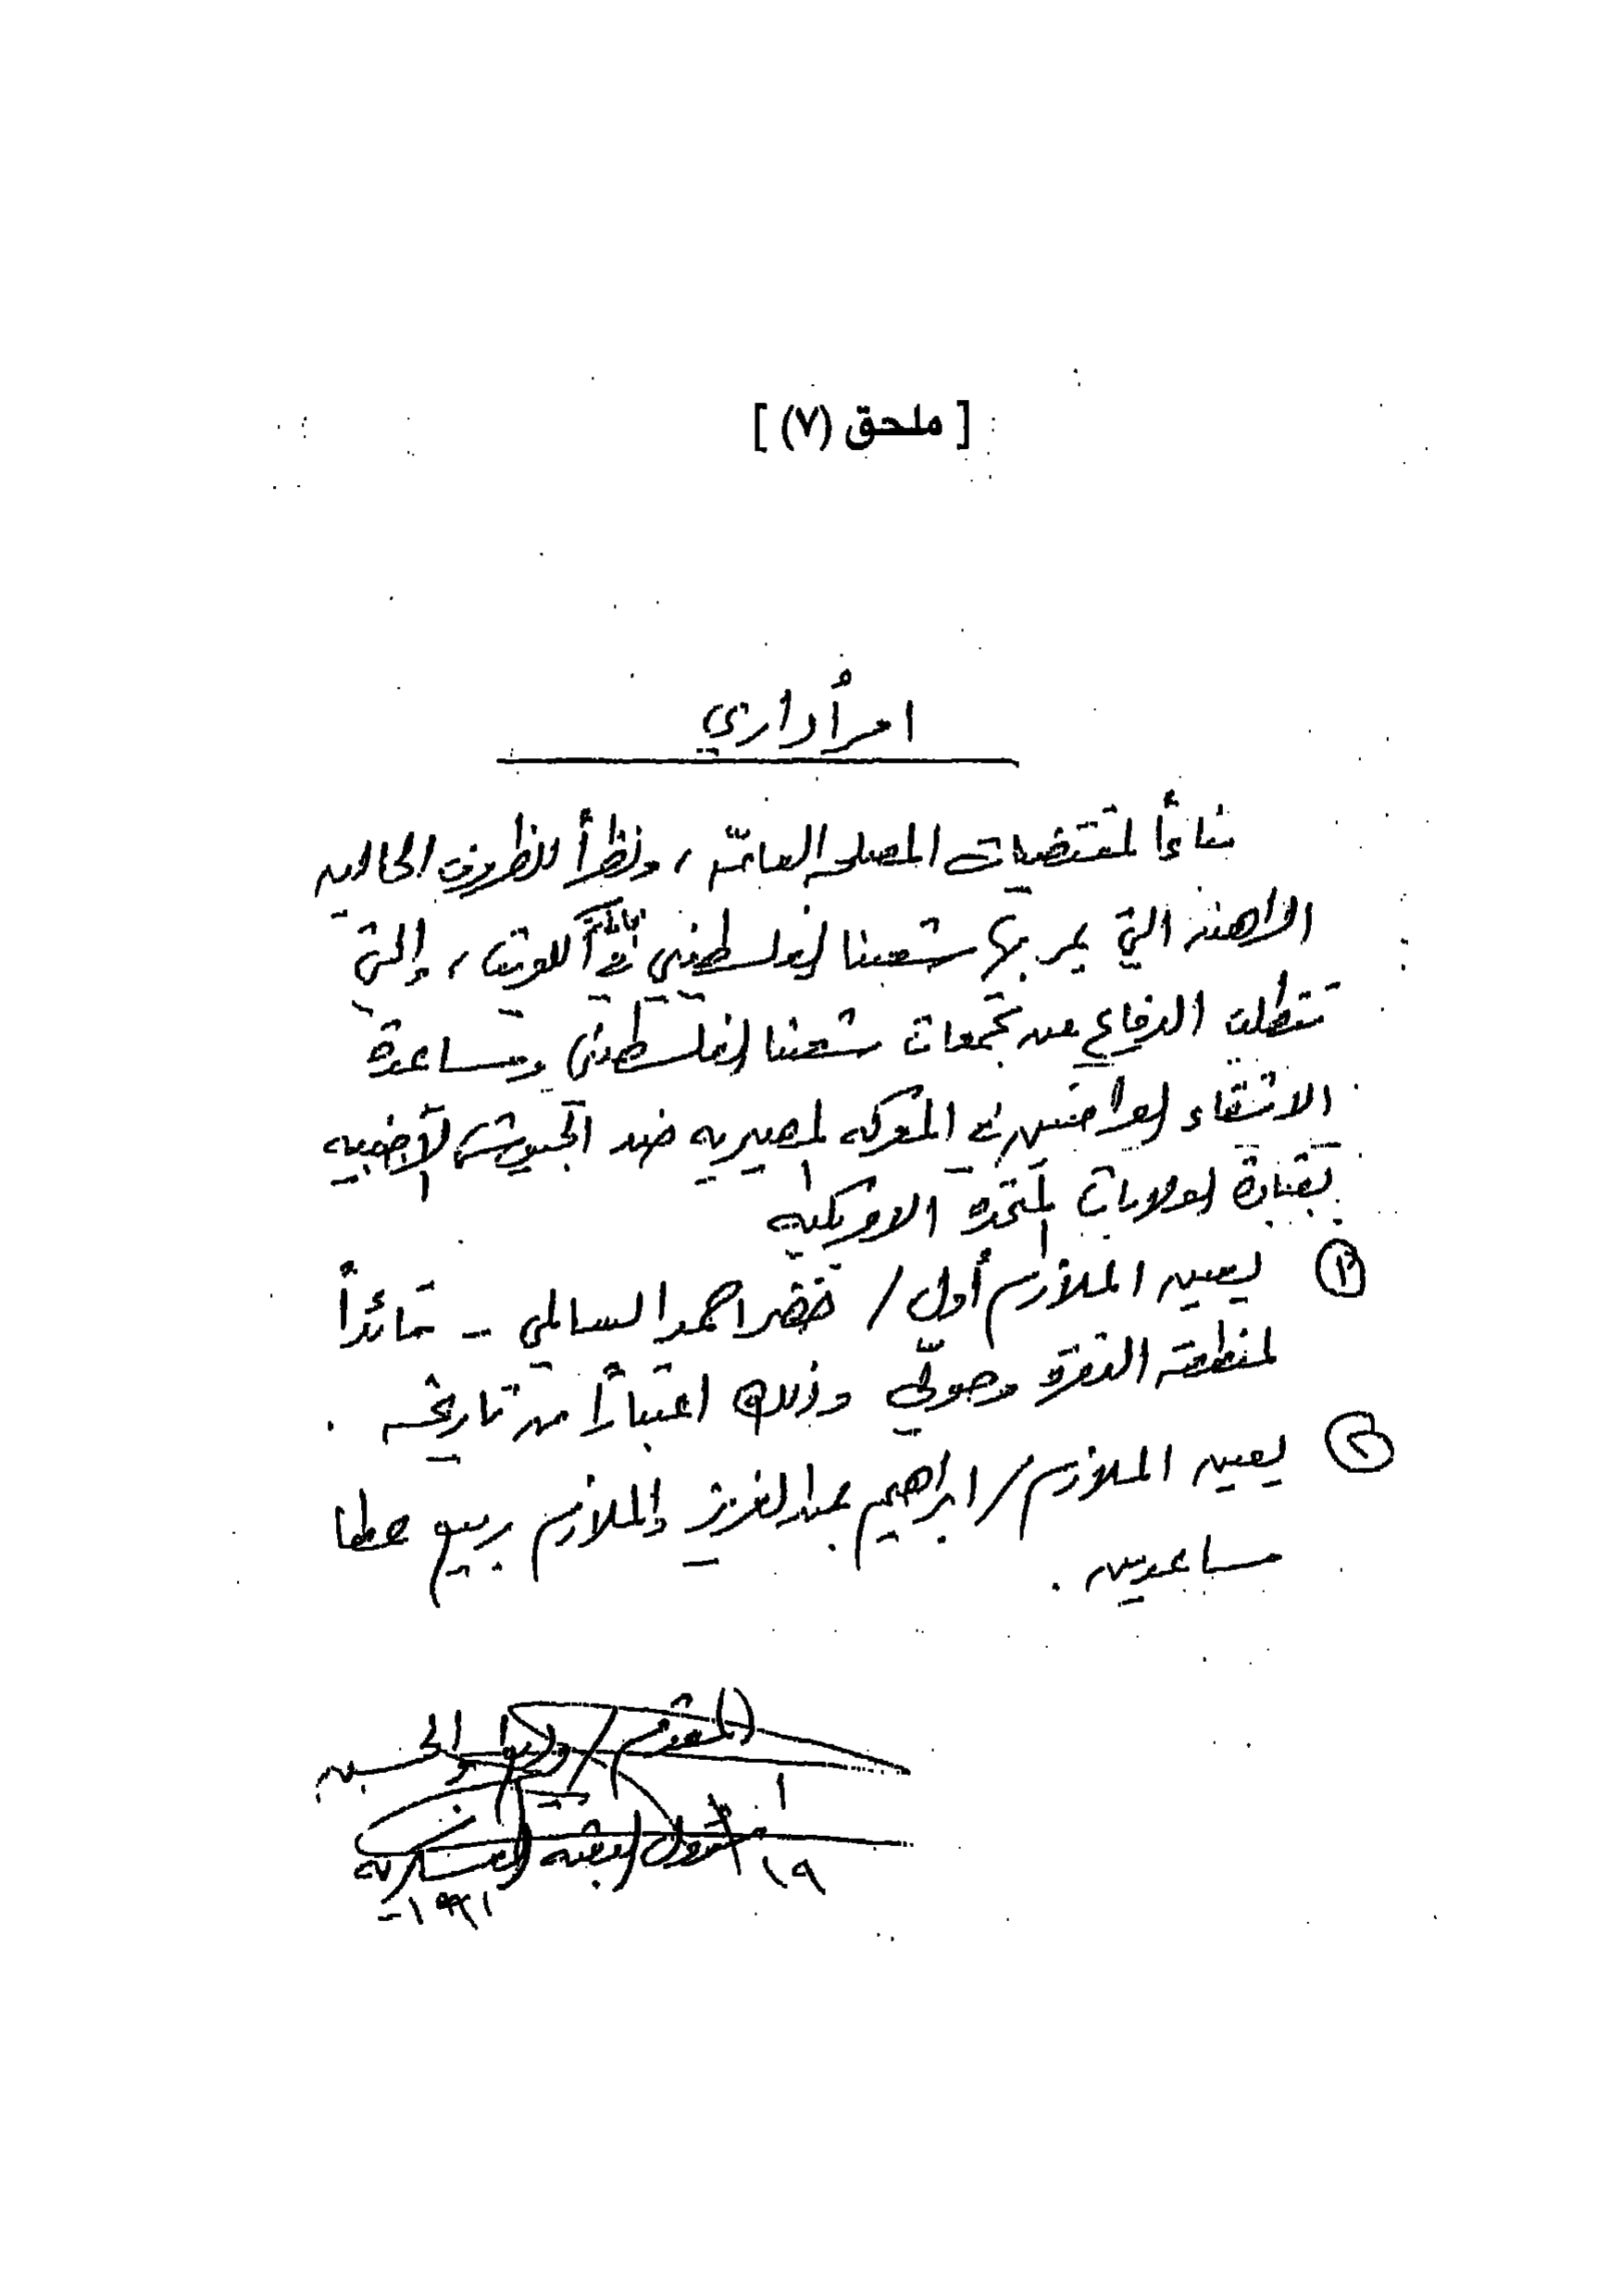 [ ملحق (٧) ]
امر أداري
بناءاً لمقتضيات المصلحه العامّه ، ونظراً للظروف الحاليه
الراهنه التي يمر بها شعبنا الفلسطيني في الكويت ، والتي
تتطلب الدفاع عن تجمعات شعبنا الفلسطيني ومساعدة
الاشقاء العراقيين في المعركه المصيريه ضد الجيوش الاجنبيه
بقيادة الولايات المتحده الامريكيه
١ يعين الملازم أول / خضر احمد السالمي - قائداً
لمنطقة النقره وحولّي وذلك اعتباراً من تاريخه .
٢ يعين الملازم / ابراهيم عبد العزيز والملازم ربيع عطا
مساعدين .
المقدم /
العسكريه
١٩٩١